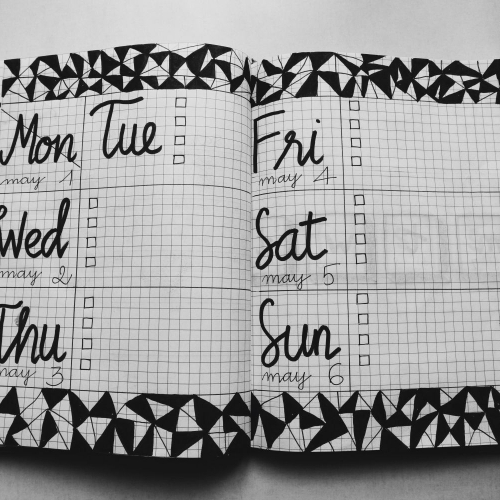 Mon Tue
may 1
Wed
may 2
Thu
may 3
Fri
may 4
Sat
may 5
Sun
may 6